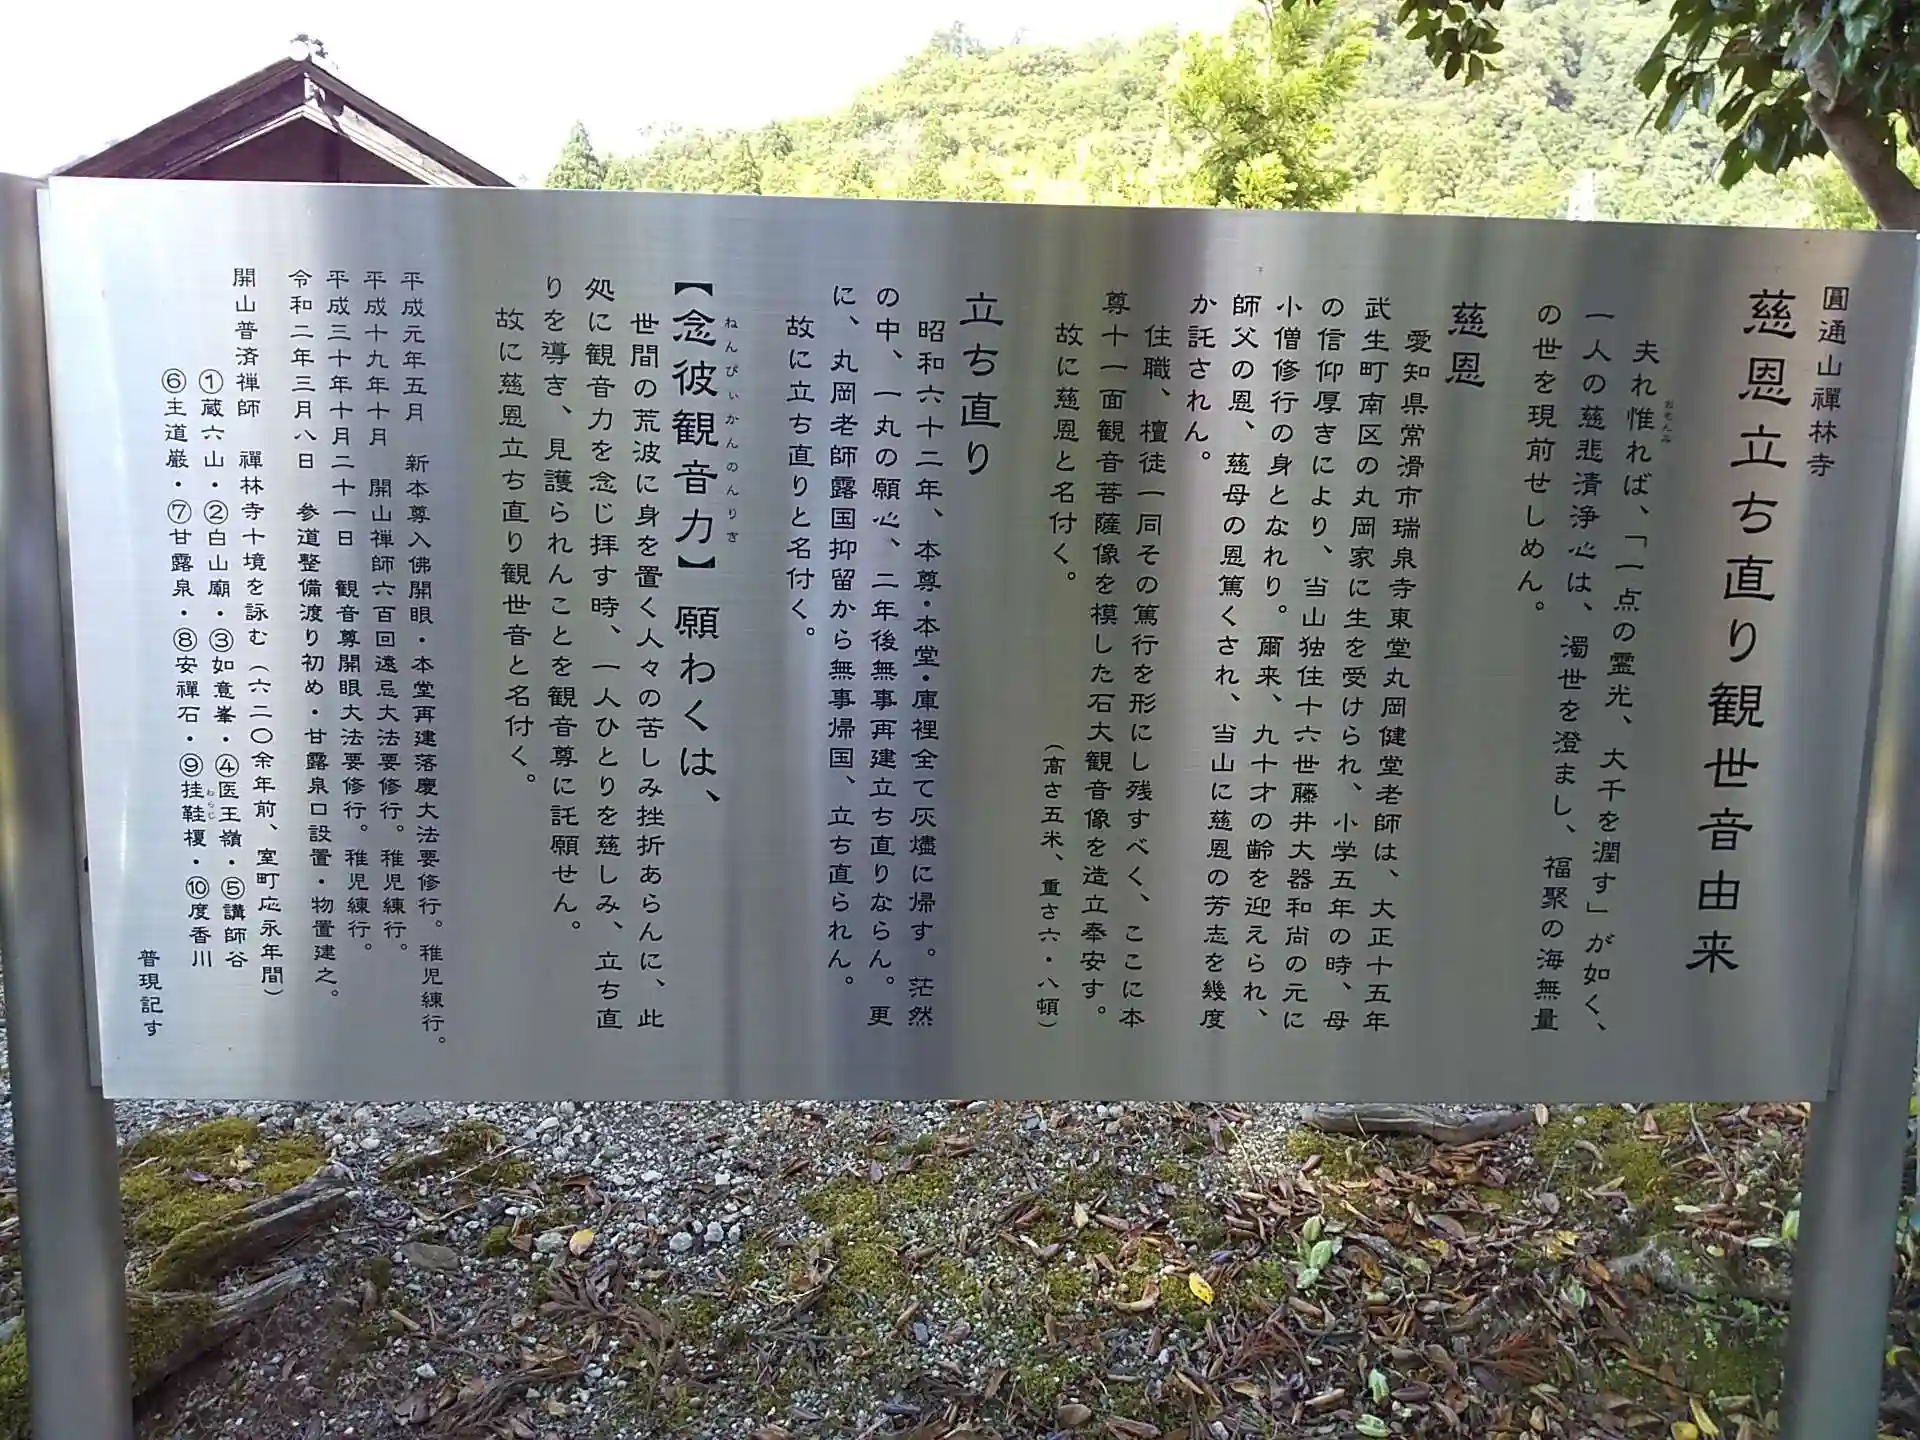 圓通山禪林寺
慈恩立ち直り観世音由来
夫れ惟れば、「一点の霊光、大千を潤す」が如く、
おもんみ
一人の慈悲清浄心は、濁世を澄まし、福聚の海無量
の世を現前せしめん。
慈恩
愛知県常滑市瑞泉寺東堂丸岡健堂老師は、大正十五年
武生町南区の丸岡家に生を受けられ、小学五年の時、母
の信仰厚きにより、当山独住十六世藤井大器和尚の元に
小僧修行の身となれり。爾来、九十才の齢を迎えられ、
師父の恩、慈母の恩篤くされ、当山に慈恩の芳志を幾度
か託されん。
住職、檀徒一同その篤行を形にし残すべく、ここに本
尊十一面観音菩薩像を模した石大観音像を造立奉安す。
故に慈恩と名付く。
（高さ五米、重さ六・八頓）
立ち直り
昭和六十二年、本尊・本堂・庫裡全て灰燼に帰す。茫然
の中、一丸の願心、二年後無事再建立ち直りならん。更
に、丸岡老師露国抑留から無事帰国、立ち直られん。
故に立ち直りと名付く。
【念彼観音力】願わくは、
ねんぴぃかんのんりき
世間の荒波に身を置く人々の苦しみ挫折あらんに、此
処に観音力を念じ拝す時、一人ひとりを慈しみ、立ち直
りを導き、見護られんことを観音尊に託願せん。
故に慈恩立ち直り観世音と名付く。
平成元年五月　新本尊入佛開眼・本堂再建落慶大法要修行。稚児練行。
平成十九年十月　開山禅師六百回遠忌大法要修行。稚児練行。
平成三十年十月二十一日　観音尊開眼大法要修行。稚児練行。
令和二年三月八日　参道整備渡り初め・甘露泉口設置・物置建之。
開山普済禅師　禪林寺十境を詠む（六二〇余年前、室町応永年間）
①蔵六山・②白山廟・③如意峯・④医王嶺・⑤講師谷
⑥主道巌・⑦甘露泉・⑧安禪石・⑨挂鞋榎・⑩度香川
わらじ
普現記す